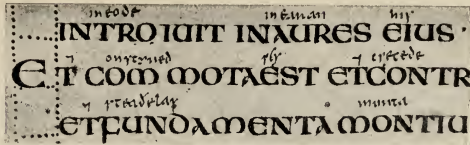 ineode in earan his
INTROIUIT INAURES EIUS ·
⁊ onstyred ⁊
ET COM MOTAEST ETCONTR
⁊ steaðelas munta
ETFUNDAMENTAMONTIU